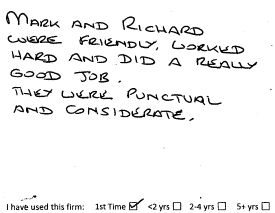 MARK AND RICHARD
WERE FRIENDLY, WORKED
HARD AND DID A REALLY
GOOD JOB.
THEY WERE PUNCTUAL
AND CONSIDERATE.
I have used this firm: 1st Time ☑ <2 yrs ☐ 2-4 yrs ☐ 5+ yrs ☐